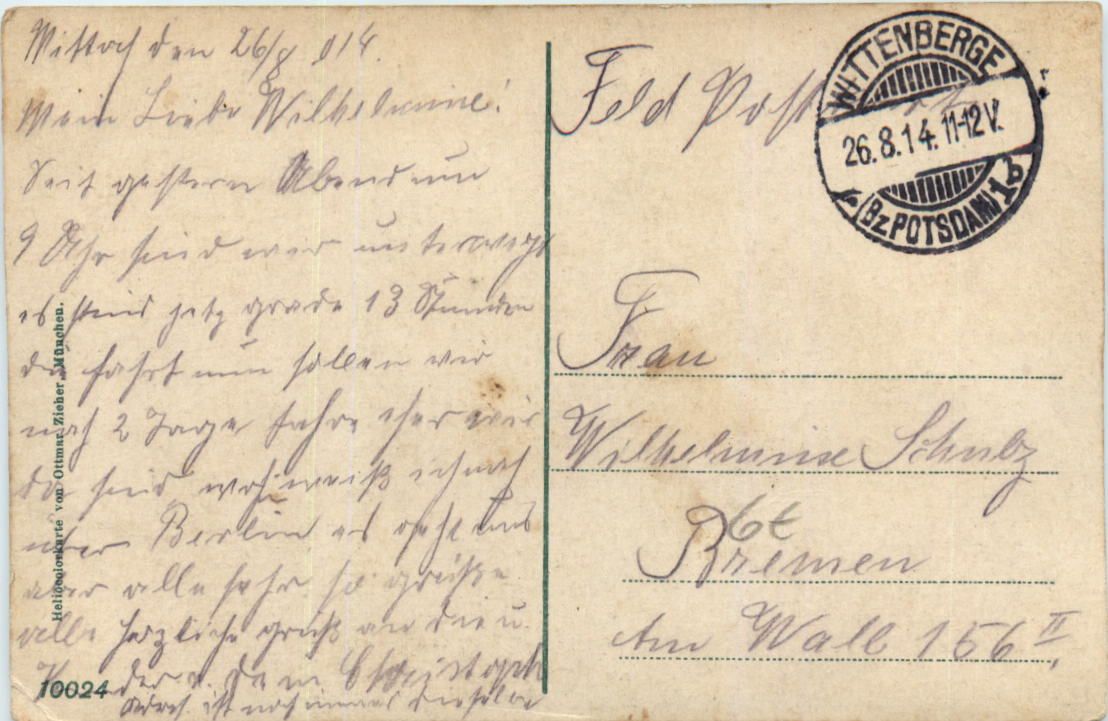 Mittwoch den 26/8 914.
Mein Liebe Wilhelmine!
Seit gestern Abend um
9 Uhr sind wir unterwegs
es sind jetz grade 13 Stunden
die fahrt nun sollen wir
noch 2 Tage fahre eher wir
da sind wo weiß ich noch
über Berlin es geht uns
aber alle sehr so grüße
alle herzliche gruß an die u.
Kinder v. dein Christoph
Adres. ist noch immer dieselbe
10024
Heliocolorkarte von Ottmar Zieher, München.
Feld Post
WITTENBERGE
26.8.14.11-12V.
(Bz POTSDAM) 1b
Frau
Wilhelmine Schulz
Bremen
Am Wall 156 II.
6t